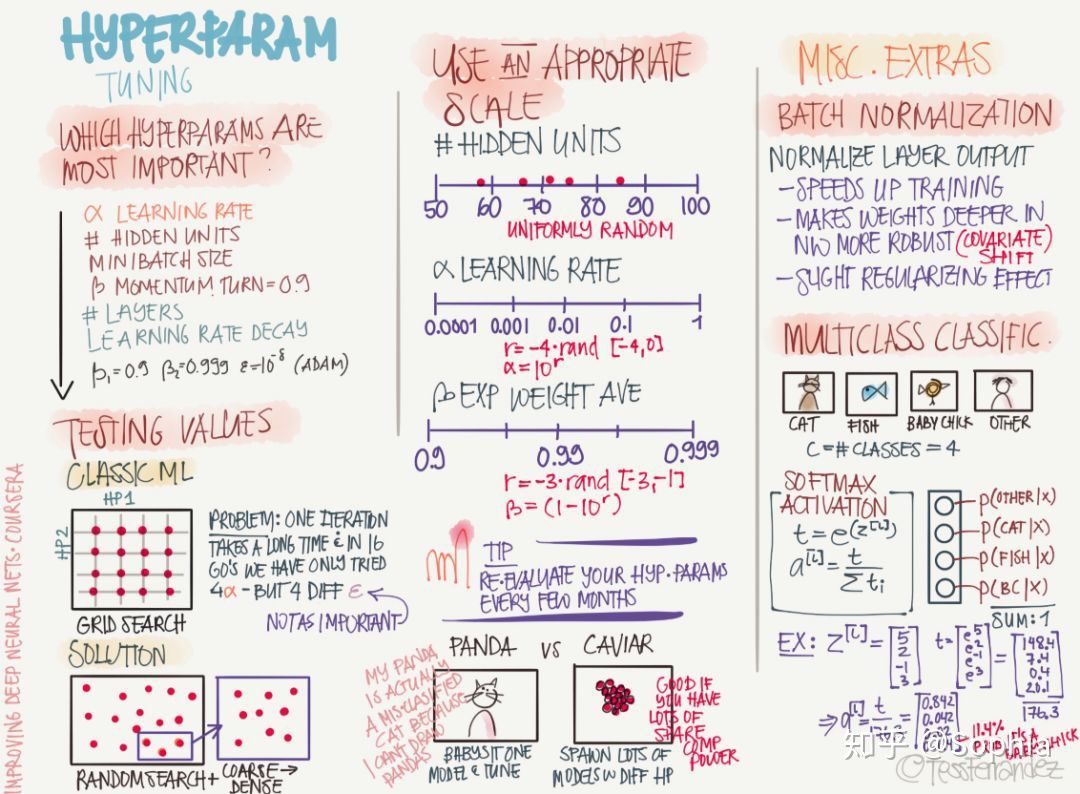 HYPERPARAM
TUNING
WHICH HYPERPARAMS ARE
MOST IMPORTANT?
α LEARNING RATE
# HIDDEN UNITS
MINIBATCH SIZE
β MOMENTUM TURN = 0.9
# LAYERS
LEARNING RATE DECAY
β₁=0.9 β₂=0.999 ε=10⁻⁸ (ADAM)
TESTING VALUES
CLASSIC ML
HP1
HP2
GRID SEARCH
PROBLEM: ONE ITERATION
TAKES A LONG TIME & IN 16
GO'S WE HAVE ONLY TRIED
4α - BUT 4 DIFF ε
NOT AS IMPORTANT
SOLUTION
RANDOM SEARCH +
COARSE→
DENSE
IMPROVING DEEP NEURAL NETS · COURSERA
USE AN APPROPRIATE
SCALE
# HIDDEN UNITS
50 60 70 80 90 100
UNIFORMLY RANDOM
α LEARNING RATE
0.0001 0.001 0.01 0.1 1
r = -4·rand [-4,0]
α = 10ʳ
β EXP WEIGHT AVE
0.9 0.99 0.999
r = -3·rand [-3,-1]
β = (1-10ʳ)
TIP
RE-EVALUATE YOUR HYP. PARAMS
EVERY FEW MONTHS
PANDA VS CAVIAR
MY PANDA
IS ACTUALLY
A MISCLASSIFIED
CAT BECAUSE
I CAN'T DRAW
PANDAS
BABYSIT ONE
MODEL & TUNE
GOOD IF
YOU HAVE
LOTS OF
SPARE
COMP
POWER
SPAWN LOTS OF
MODELS W DIFF HP
MISC. EXTRAS
BATCH NORMALIZATION
NORMALIZE LAYER OUTPUT
- SPEEDS UP TRAINING
- MAKES WEIGHTS DEEPER IN
NW MORE ROBUST (COVARIATE)
SHIFT
- SLIGHT REGULARIZING EFFECT
MULTICLASS CLASSIFIC.
CAT FISH BABY CHICK OTHER
C = # CLASSES = 4
SOFTMAX
ACTIVATION
t = e^(z^[L])
a^[L] = t / Σtᵢ
P(OTHER|X)
P(CAT|X)
P(FISH|X)
P(BC|X)
SUM: 1
EX: z^[L] = [5 2 -1 3] t = [e⁵ e² e⁻¹ e³] = [148.4 7.4 0.4 20.1]
176.3
⇒ a^[L] = t / 176.3 = [0.842 0.042
11.4%
知乎 @Sophia
@TessFerrandez